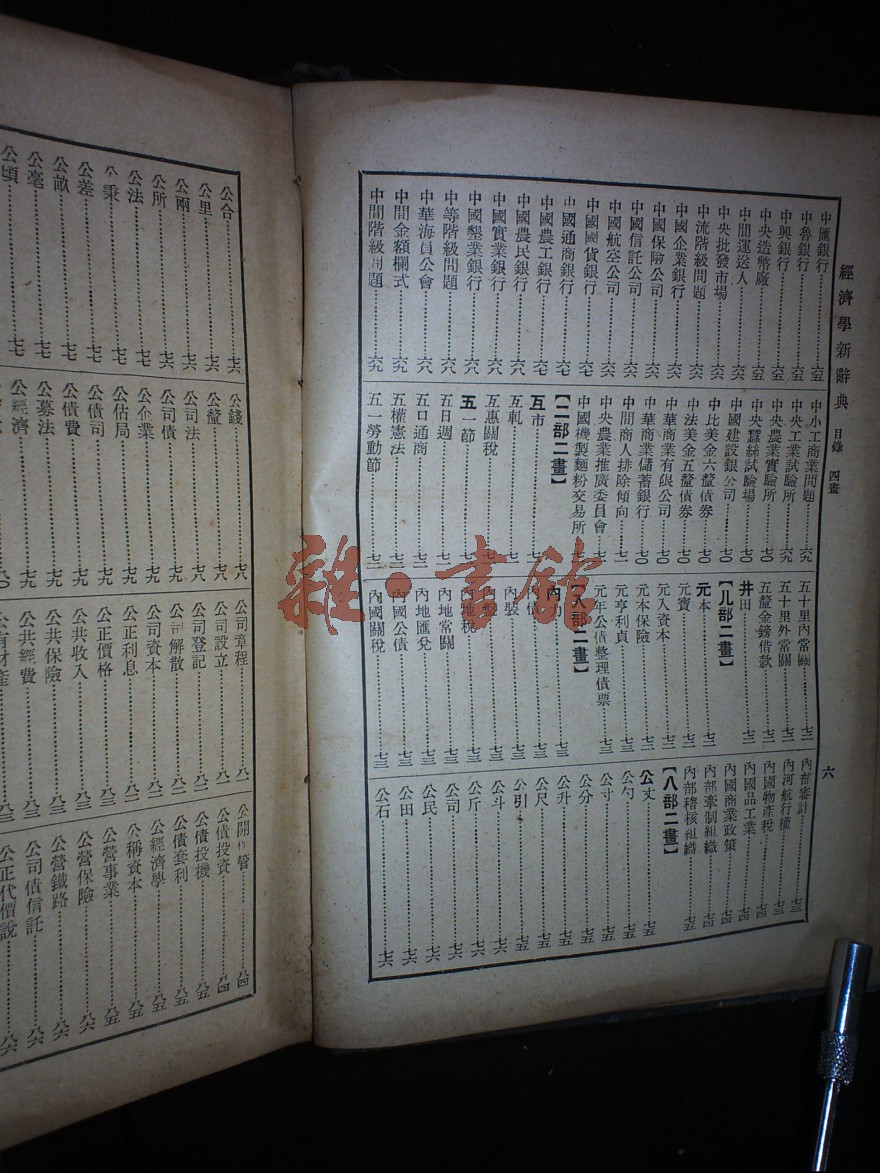 經濟學新辭典 目錄 四畫
六
中匯銀行 六五
中魯銀行 六五
中興銀行 六五
中央造幣廠 六五
中間運送人 六六
中央批發市場 六六
中流階級問題 六六
中國企業銀行 六六
中國保險公司 六六
中國信託公司 六六
中國航空公司 六六
中國國貨銀行 六七
中國通商銀行 六七
中國農工銀行 六七
中國農民銀行 六八
中國實業銀行 六八
中國墾業銀行 六八
中等階級問題 六八
中華海員公會 六八
中間金額欄式 六九
中間階級問題 六九
中小工商業問題 六九
中央工業試驗所 六九
中央農業實驗所 七〇
中央蠶絲試驗場 七〇
中國建設銀公司 七〇
中比美金六釐債券 七〇
中法美金五釐債券 七〇
中華商業有限公司 七〇
中華商業儲蓄銀行 七〇
中間商人排除傾向 七一
中央農業推廣委員會
中國機製麵粉交易所
【二部二畫】
互市
五軋
五惠關稅
五一節
五日週
五口通商 七二
五權憲法 七二
五一勞動節 七二
五十里內常關 七二
五十里外常關 七二
五釐金鎊借款 七二
井田 七二
【儿部二畫】
元本 七二
元寶 七二
元入資本 七二
元本保險 七三
元亨利貞 七三
元年公債整理債票 七三
【入部二畫】
內力 七三
內債 七三
內裝 七三
內地稅 七三
內地常關 七三
內地匯兌 七三
內國公債 七三
內國關稅 七三
內部審計 七三
內河航行權 七三
內國物產稅 七四
內國品工業 七四
內國商業政策 七四
內部牽制組織 七四
內部稽核組織 七五
【八部二畫】
公丈 七五
公勺 七五
公寸 七五
公分 七五
公升 七五
公尺 七五
公引 七五
公斗 七六
公斤 七六
公司 七六
公民 七六
公田 七六
公石 七六
公合 七六
公里 七六
公兩 七六
公所 七六
公法 七七
公秉 七七
公差 七七
公畝 七七
公毫 七七
公頃 七七
公錢 七八
公釐 七八
公司法 七八
公司債 七九
公企業 七九
公估局 七九
公債司 七九
公債費 七九
公募法 七九
公經濟 七九
公司章程 八一
公司設立 八一
公司登記 八一
公司解散 八二
公司資本 八二
公正利息 八二
公正價格 八三
公共收入 八三
公共保險 八三
公共經費 八三
公有財產 八三
公開保管 八四
公債投資 八四
公債投機 八五
公債套利 八五
公經濟學 八五
公稱資本 八五
公營事業 八五
公營保險 八六
公營鐵路 八六
公司債信託 八六
公正代價說 八六
雜·書館